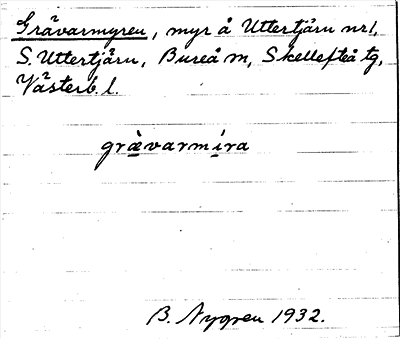 Grävarmyren, myr å Uttertjärn nr1,
S. Uttertjärn, Bureå m, Skellefteå tg,
Västerb. l.
grävarmira
B. Nygren 1932.